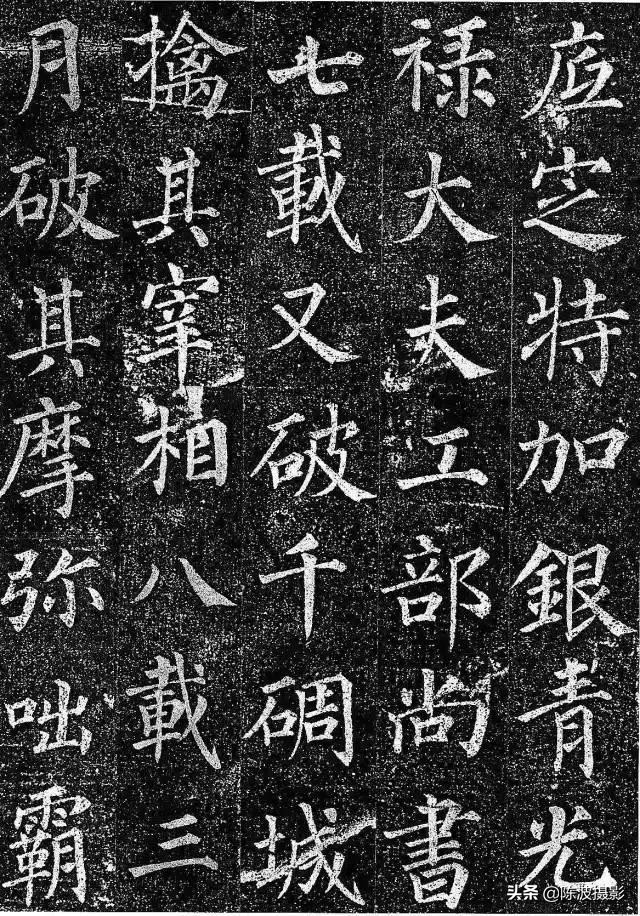 底定特加銀青光
禄大夫工部尚書
七載又破千碉城
擒其宰相八載三
月破其摩弥咄霸
头条 @陈波摄影